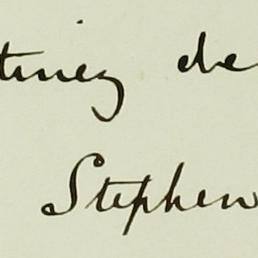 tinez de
Stephen